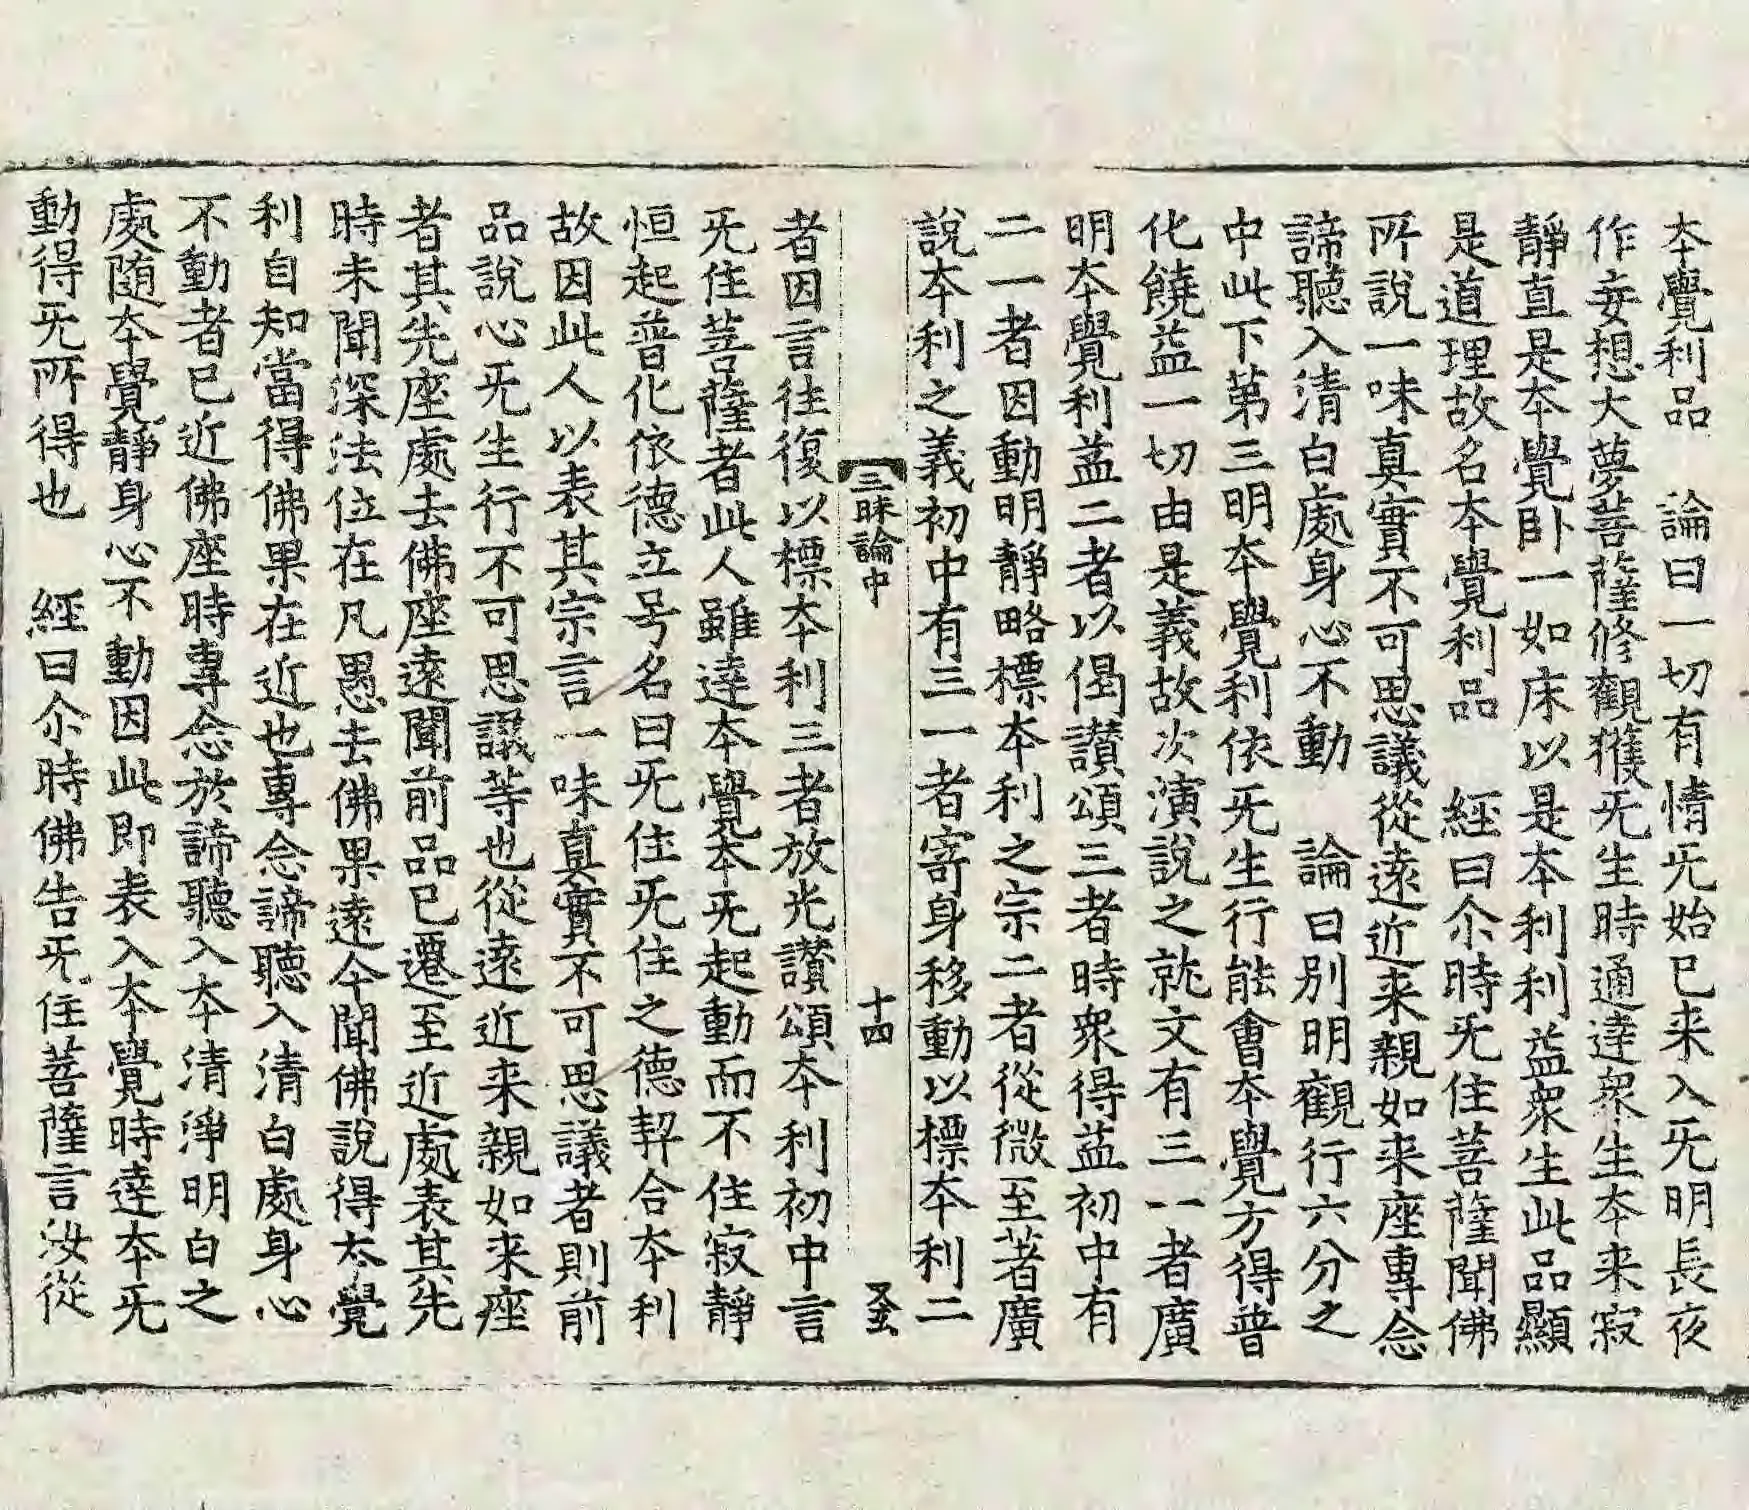 夲覺利品　論曰一切有情旡始已来入旡明長夜
作妄想大夢菩薩修觀獲旡生時通達衆生夲来寂
靜直是夲覺卧一如床以是夲利利益衆生此品顯
是道理故名夲覺利品　經曰尒時旡住菩薩聞佛
所說一味真實不可思議從遠近来親如来座專念
諦聽入清白處身心不動　論曰别明觀行六分之
中此下苐三明夲覺利依旡生行能會夲覺方得普
化饒益一切由是義故次演說之就文有三一者廣
明夲覺利益二者以偈讃頌三者時衆得益初中有
二一者因動明靜略標夲利之宗二者從微至著廣
說夲利之義初中有三一者寄身移動以標夲利二
三昧論中
十四
者因言往復以標夲利三者放光讃頌夲利初中言
旡住菩薩者此人雖達夲覺夲旡起動而不住寂靜
恒起普化依德立号名曰旡住旡住之德契合夲利
故因此人以表其宗言一味真實不可思議者則前
品說心旡生行不可思議等也從遠近来親如来座
者其先座處去佛座遠聞前品已遷至近處表其先
時未聞深法位在凡愚去佛果遠今聞佛說得夲覺
利自知當得佛果在近也專念諦聽入清白處身心
不動者已近佛座時專念於諦聽入夲清淨明白之
處随夲覺靜身心不動因此即表入夲覺時達夲旡
動得旡所得也　經曰尒時佛告旡住菩薩言汝從